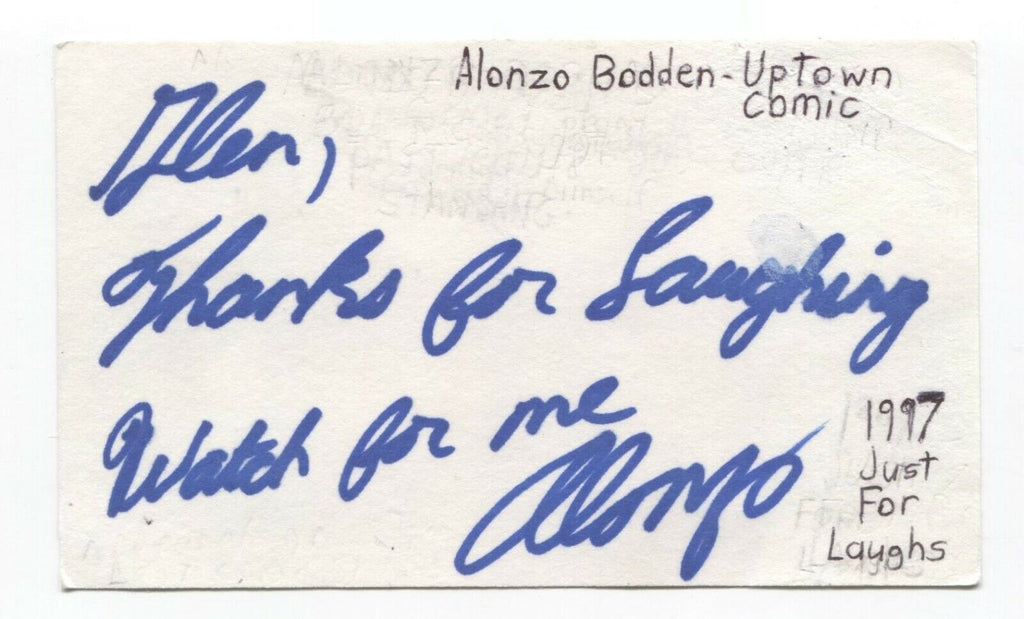 Alonzo Bodden - UpTown
Comic
Glen,
Thanks for Laughing
Watch for me
Alonzo
1997
Just
For
Laughs